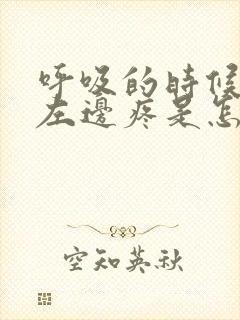 呼吸的時候
左邊疼是怎
空知英秋